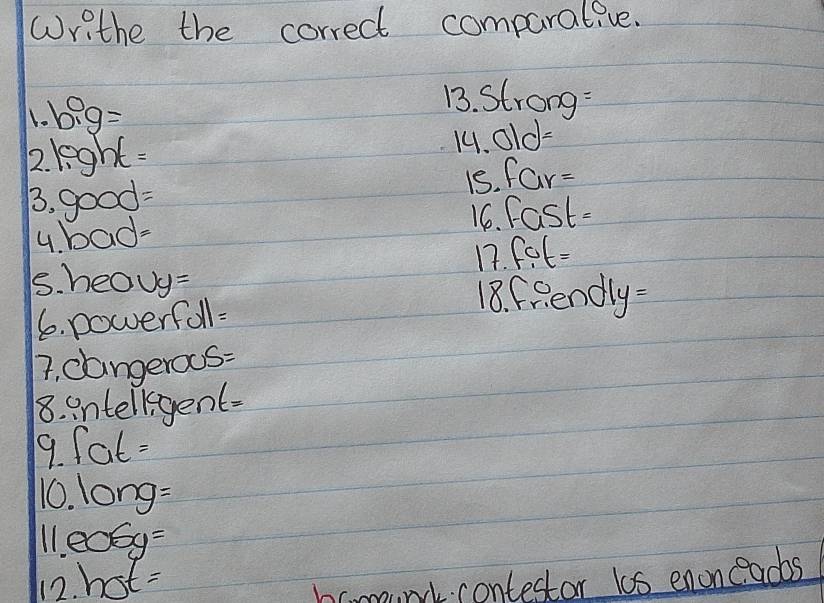 Writhe the correct comparative.
1. big=
2. light=
3. good=
4. bad=
5. heavy=
6. powerfull=
7. dangerous=
8. intelligent=
9. fat=
10. long=
11. easy=
12. hot=
13. Strong=
14. old=
15. far=
16. fast=
17. fit=
18. friendly=
contestar los enunciados